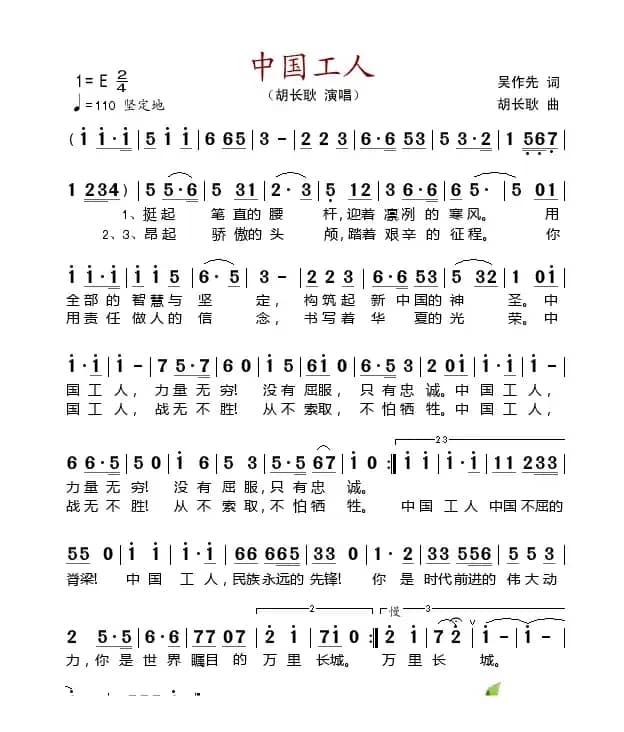 中国工人
1=E 2/4
（胡长耿 演唱）
吴作先 词
♩=110 坚定地
胡长耿 曲
( i i·i | 5 i i | 6 65 | 3 - | 2 2 3 | 6·6 53 | 5 3·2 | 1 567 |
1 234 ) | 5 5·6 | 5 31 | 2·3 | 5 12 | 3 6·6 | 6 5· | 5 01 |
1、挺起 笔直的 腰 杆,迎着 凛冽 的 寒风。 用
2、3、昂起 骄傲的 头 颅,踏着 艰辛 的 征程。 你
i i·i | i i 5 | 6·5 | 3 - | 2 2 3 | 6·6 53 | 5 32 | 1 0i |
全部的 智慧与 坚 定, 构筑起 新 中国的 神 圣。中
用责任 做人的 信 念, 书写着 华 夏的 光 荣。中
i·i | i - | 7 5·7 | 6 0 | i 5 | 6i 0 | 6·5 3 | 2 0i | i·i | i - |
国 工 人, 力量 无 穷! 没 有 屈服, 只 有 忠 诚。中 国 工 人,
国 工 人, 战无 不 胜! 从 不 索取, 不 怕 牺 牲。中 国 工 人,
6 6·5 | 5 0 | i 6 | 5 3 | 5·5 67 | i 0 :| i i | i·i | 11 233 |
2 3
力 量 无 穷! 没 有 屈 服,只 有 忠 诚。
战 无 不 胜! 从 不 索 取,不 怕 牺 牲。 中 国 工 人 中国 不屈的
55 0 | i i | i i | 66 665 | 33 0 | i·2 | 33 556 | 5 5 3 |
脊梁! 中 国 工 人,民族 永远的 先锋! 你 是 时代 前进的 伟 大 动
2 5·5 | 6·6 | 77 07 | 2 i | 7i 0 :| 2 i | 7 2 | i - | i - |
2
慢
3
力,你 是 世 界 瞩目 的 万 里 长城。 万 里 长 城。